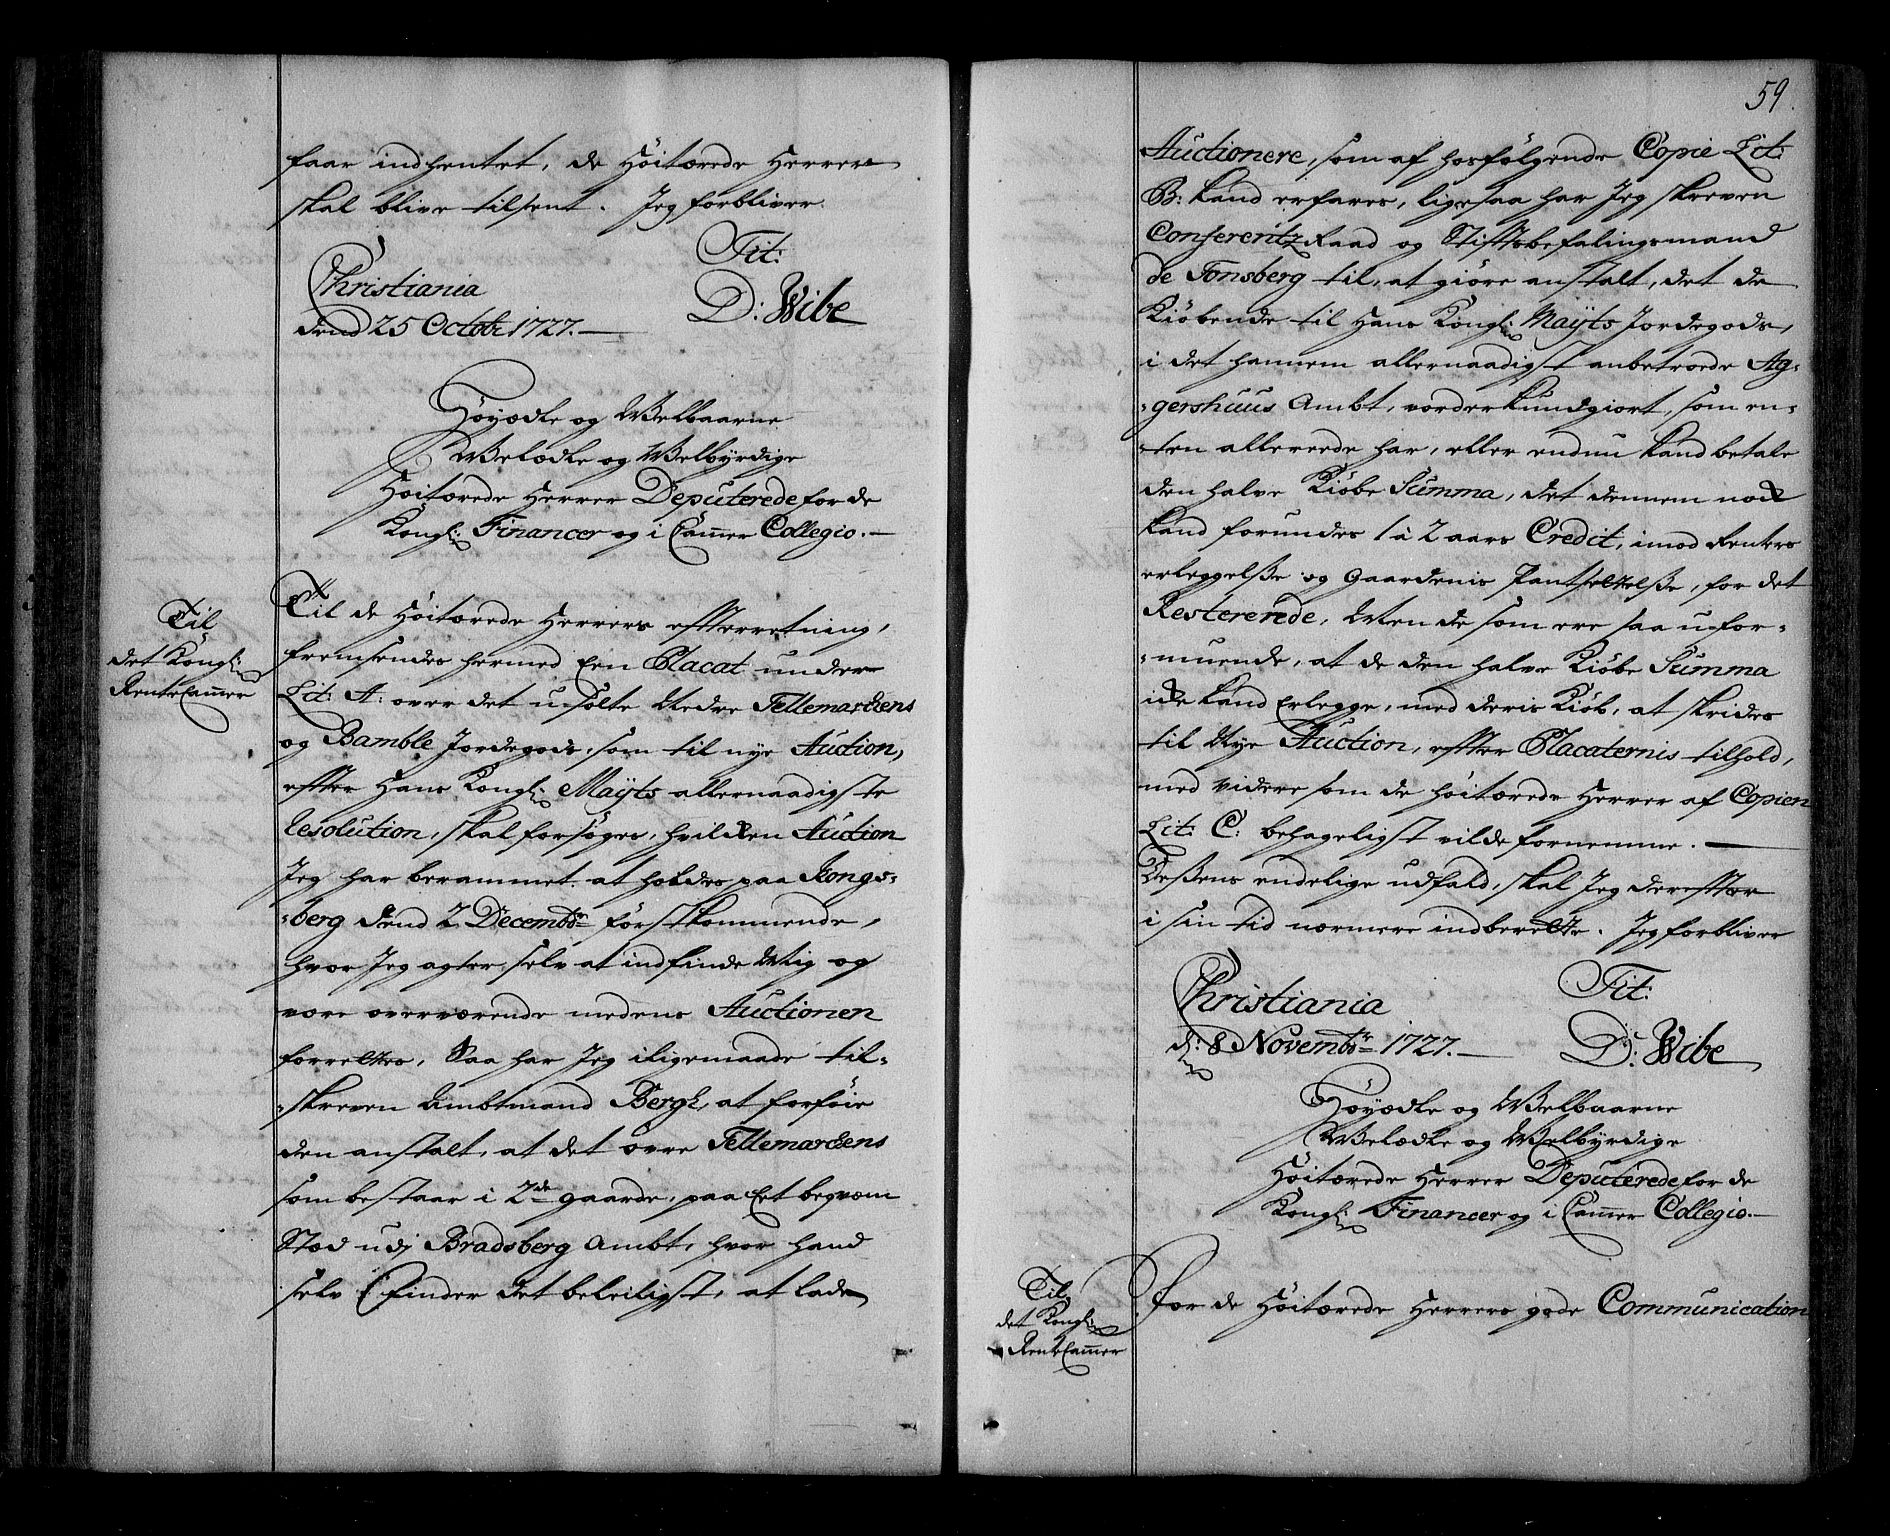 faar indhentet, de Høitærede Herrer
skal blive tilsent. Jeg forbliver
Tit:
Christiania
dend 25 Octobr 1727.
D: Wibe
Høyædle og Welbaarne
Welædle og Welbyrdige
Høitærede Herrer Deputerede for de
Kongl: Financer og i Cammer Collegio.
Til
det Kongl:
RenteCammer
Til de Høitærede Herrers effterretning,
fremsendes hermed Een Placat under
Lit: A: over det usolte Nedre Tellemarckens
og Bamble Jordegods, som til nye Auction,
effter Hans Kongl: Mayts allernaadigste
Resolution, skal forsøges, hvilcken Auction
Jeg har berammet at holdes paa Kongs-
-berg dend 2 Decembr: førstkommende,
hvor Jeg agter selv at indfinde Mig og
være overværende medens Auctionen
forrettes, Saa har Jeg iligemaade til-
-skreven Ambtmand Bergh, at forføie
den anstalt, at det øvre Tellemarckens
som bestaar i 2de gaarde, paa Et beqvæm
Stæd udj Bradsberg Ambt, hvor hand
selv finder det beleiligst, at lade
59.
Auctionere, som af hosfølgende Copie Lit:
B: kand erfares, ligesaa har Jeg skreven
ConferentzRaad og Stifftsbefalingsmand
de Tonsberg til, at giøre anstalt, det de
Kiøbende til Hans Kongl: Mayts Jordegods,
i det hannem allernaadigst anbetroede Ag-
-gershuus Ambt, vorder kundgiort, som en-
-ten allereede har, eller endnu kand betale
den halve Kiøbe Summa, det dennem nock
kand forundes 1 à 2 aars Credit, imod Renters
erleggelße og Gaardenis Pantsettelße, for det
Resterende, Men de som ere saa ufor-
-muende, at de den halve Kiøbe Summa
icke kand Erlegge, med deris Kiøb, at skrides
til Nye Auction, effter Placaternis tilhold,
med videre som de høitærede Herrer af Copien
Lit: C: behageligst vilde fornemme.
Deßens endelige udfald, skal Jeg dereffter
i sin tid nærmere indberette. Jeg forbliver
Christiania
d: 8 Novembr: 1727.
Tit:
D: Wibe
Høyædle og Welbaarne
Welædle og Welbyrdige
Høitærede Herrer Deputerede for de
Kongl: Financer og i Cammer Collegio.
Til
det Kongl:
RenteCammer
For de Høitærede Herrers gode Communication